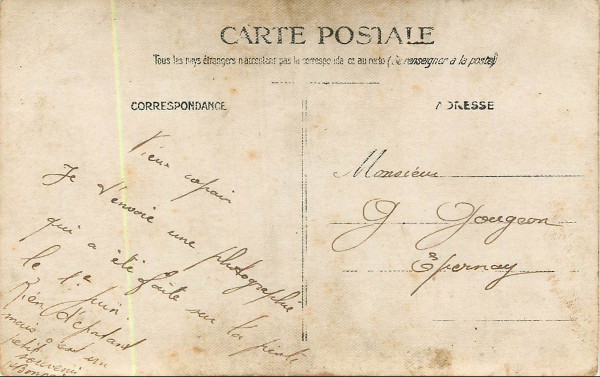 CARTE POSTALE
Tous les pays étrangers n'acceptent pas la correspondance au recto (Se renseigner à la poste)
CORRESPONDANCE
Vieux copain
Je t'envoie une photographie
qui a été faite sur la
le 1er juin.
Rien d'épatant
mais c'est un
petit souvenir
ADRESSE
Monsieur
G. Gougeon
Épernay